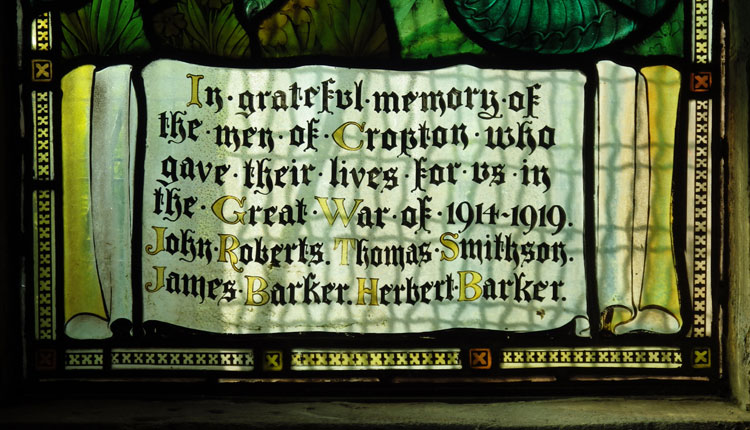 In·grateful·memory·of
the·men·of·Cropton·who
gave·their·lives·for·us·in
the·Great·War·of·1914-1919.
John·Roberts. Thomas·Smithson.
James·Barker. Herbert·Barker.